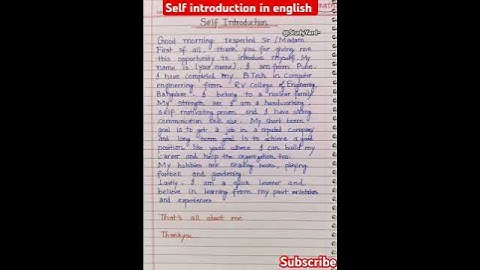 Self introduction in english
Self Introduction
@StudyYard-
Good morning respected Sir / Madam.
First of all, thank you for giving me
this opportunity to introduce myself. My
name is (your name). I am from Pune.
I have completed my B.Tech in Computer
engineering from RV College of Engineering,
Bangalore. I belong to a nuclear family.
My strength are I am a hardworking,
self motivating person and I have strong
communication skill also. My short term
goal is to get a job in a reputed company
and long term goal is to achieve a good
position like yours where I can build my
career and help the organization too.
My hobbies are reading books, playing
football and gardening.
Lastly, I am a quick learner and
believe in learning from my past mistakes
and experiences.
That's all about me
Thankyou
Subscribe